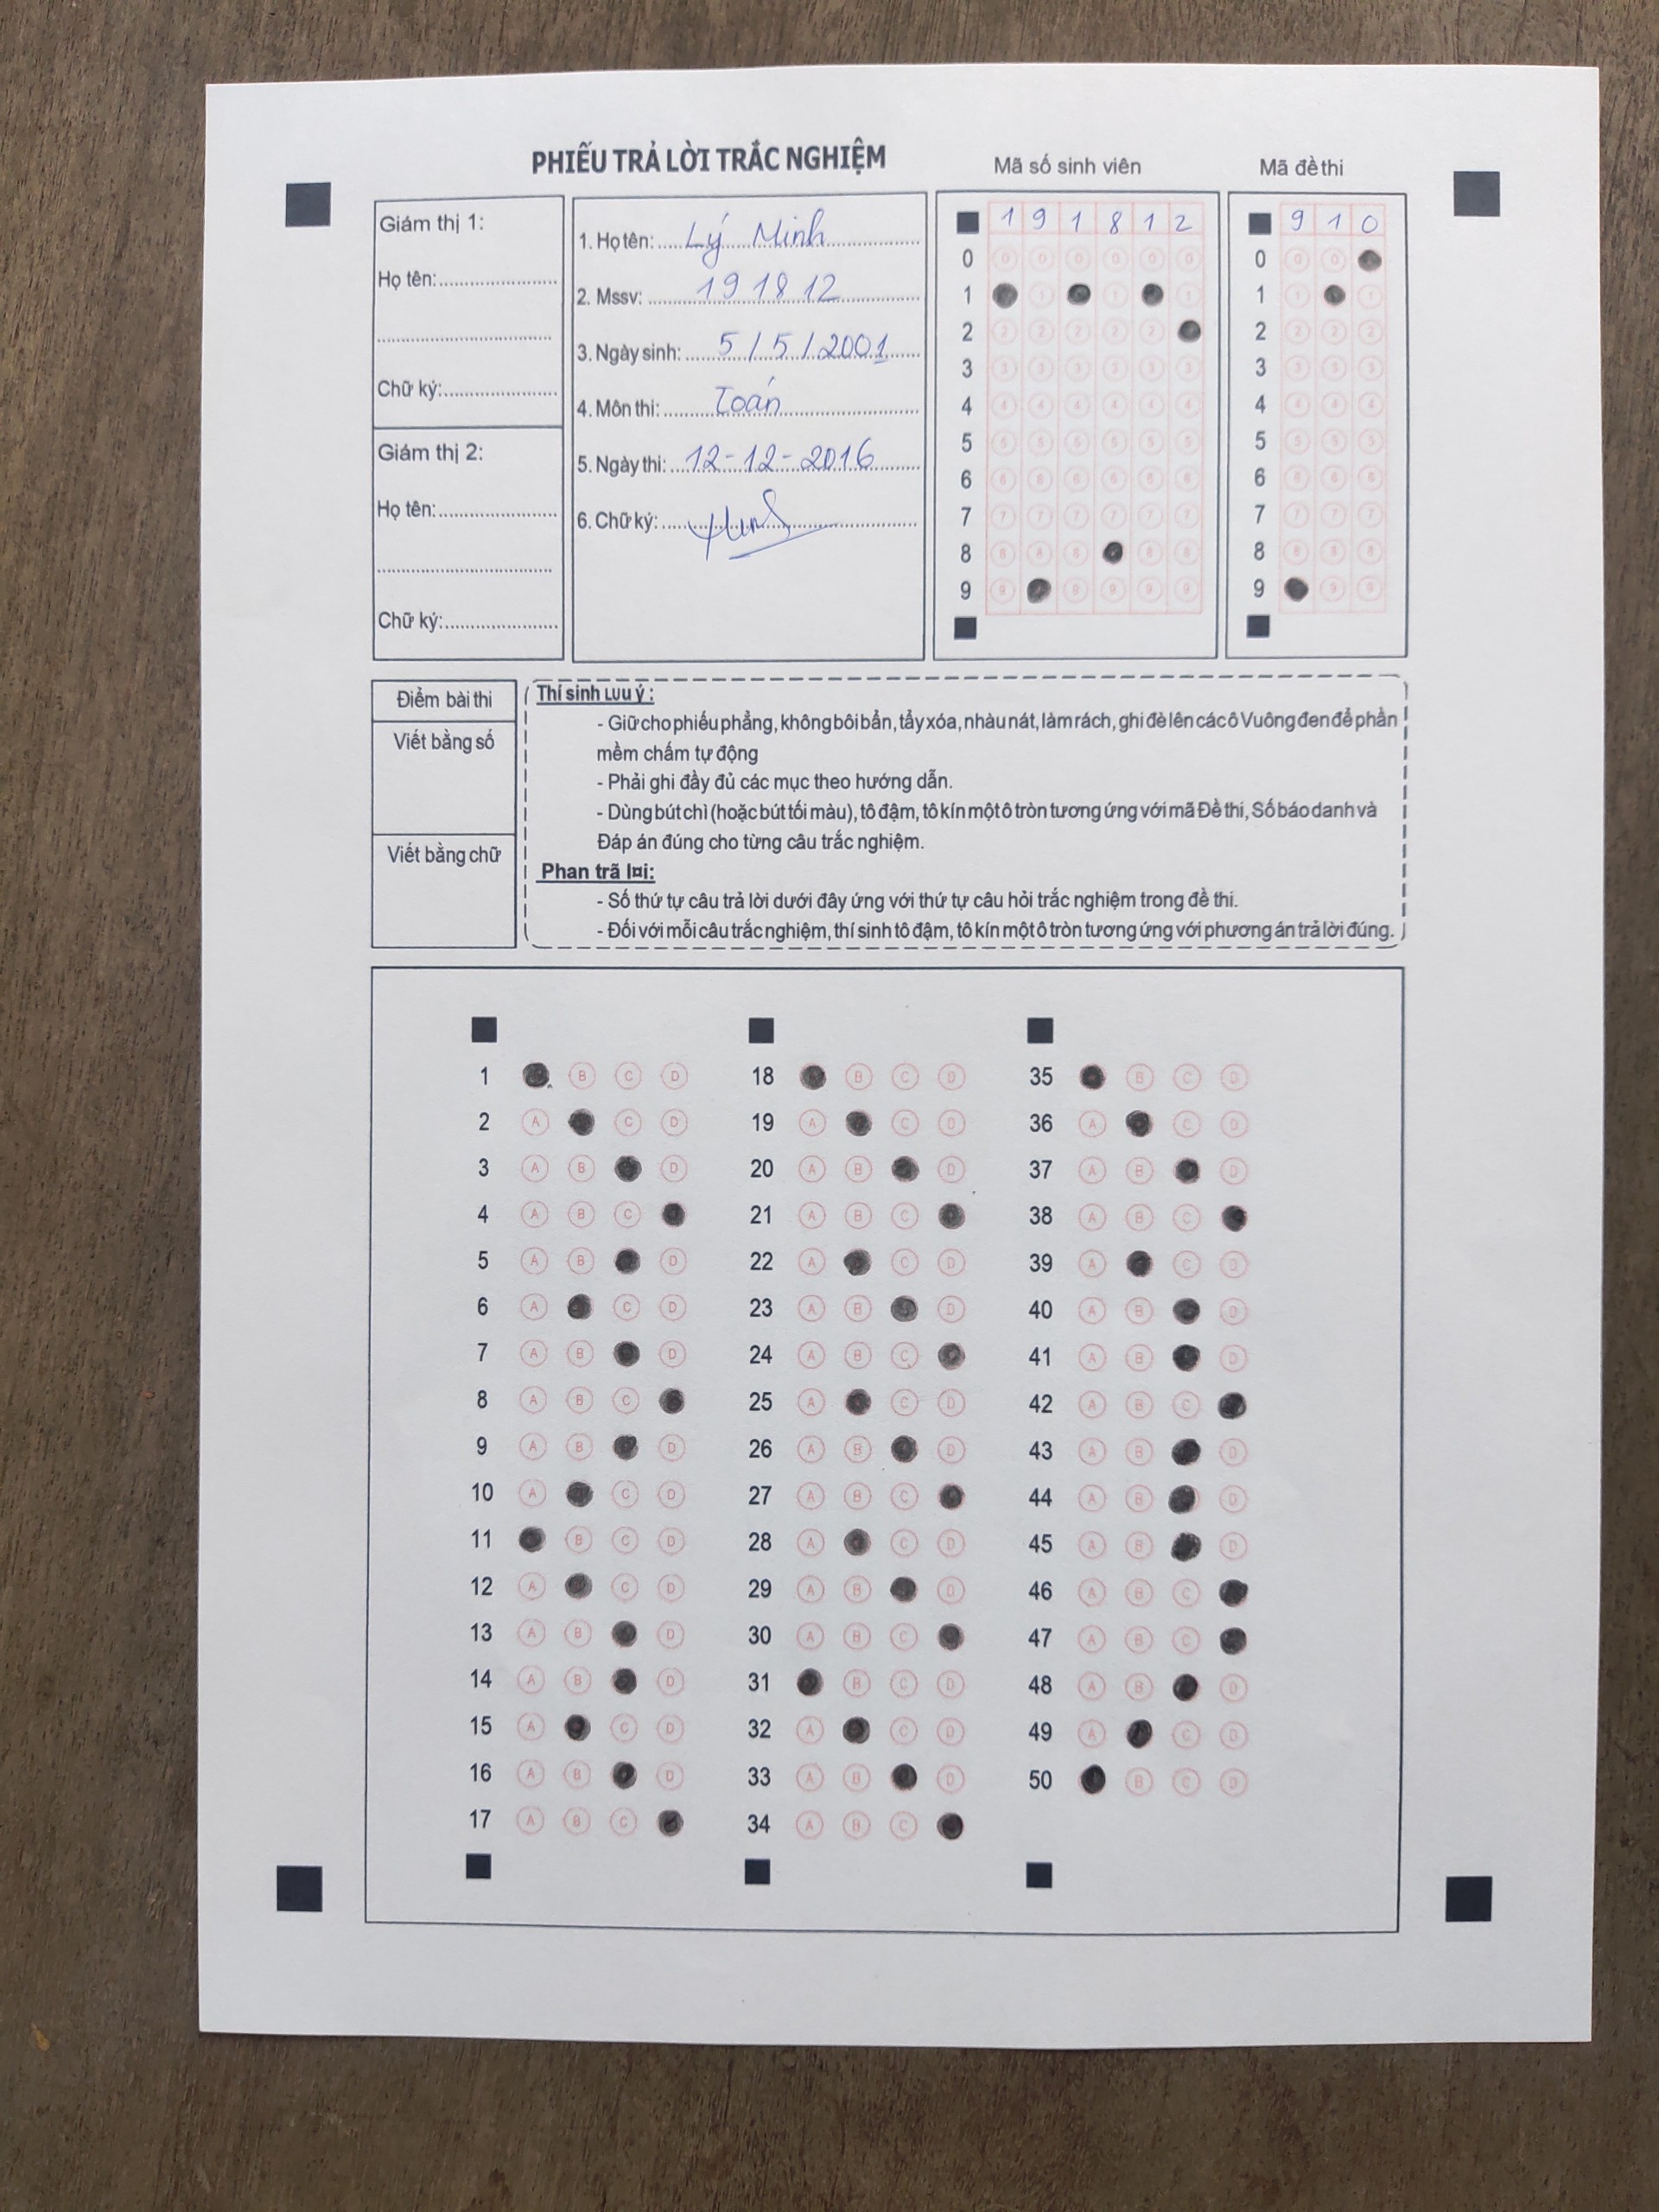 PHIẾU TRẢ LỜI TRẮC NGHIỆM
Mã số sinh viên
Mã đề thi
Giám thị 1:
Họ tên:
Chữ ký:
Giám thị 2:
Họ tên:
Chữ ký:
1. Họ tên: Lý Minh
2. Mssv: 191812
3. Ngày sinh: 5/5/2001
4. Môn thi: Toán
5. Ngày thi: 12-12-2016
6. Chữ ký:
1 9 1 8 1 2
0 0 0 0 0 0 0
1 1 1 1
2 2 2 2 2 2
3 3 3 3 3 3 3
4 4 4 4 4 4 4
5 5 5 5 5 5 5
6 6 6 6 6 6 6
7 7 7 7 7 7 7
8 8 8 8 8 8
9 9 9 9 9 9
9 1 0
0 0 0
1 1 1
2 2 2 2
3 3 3 3
4 4 4 4
5 5 5 5
6 6 6 6
7 7 7 7
8 8 8 8
9 9 9
Điểm bài thi
Viết bằng số
Viết bằng chữ
Thí sinh LƯU ý :
- Giữ cho phiếu phẳng, không bôi bẩn, tẩy xóa, nhàu nát, làm rách, ghi đè lên các ô Vuông đen để phần
mềm chấm tự động
- Phải ghi đầy đủ các mục theo hướng dẫn.
- Dùng bút chì (hoặc bút tối màu), tô đậm, tô kín một ô tròn tương ứng với mã Đề thi, Số báo danh và
Đáp án đúng cho từng câu trắc nghiệm.
Phan trã l¤i:
- Số thứ tự câu trả lời dưới đây ứng với thứ tự câu hỏi trắc nghiệm trong đề thi.
- Đối với mỗi câu trắc nghiệm, thí sinh tô đậm, tô kín một ô tròn tương ứng với phương án trả lời đúng.
1 B C D
2 A C D
3 A B D
4 A B C
5 A B D
6 A C D
7 A B D
8 A B C
9 A B D
10 A C D
11 B C D
12 A C D
13 A B D
14 A B D
15 A C D
16 A B D
17 A B C
18 B C D
19 A C D
20 A B D
21 A B C
22 A C D
23 A B D
24 A B C
25 A C D
26 A B D
27 A B C
28 A C D
29 A B D
30 A B C
31 B C D
32 A C D
33 A B D
34 A B C
35 B C D
36 A C D
37 A B D
38 A B C
39 A C D
40 A B D
41 A B D
42 A B C
43 A B D
44 A B D
45 A B D
46 A B C
47 A B C
48 A B D
49 A C D
50 B C D